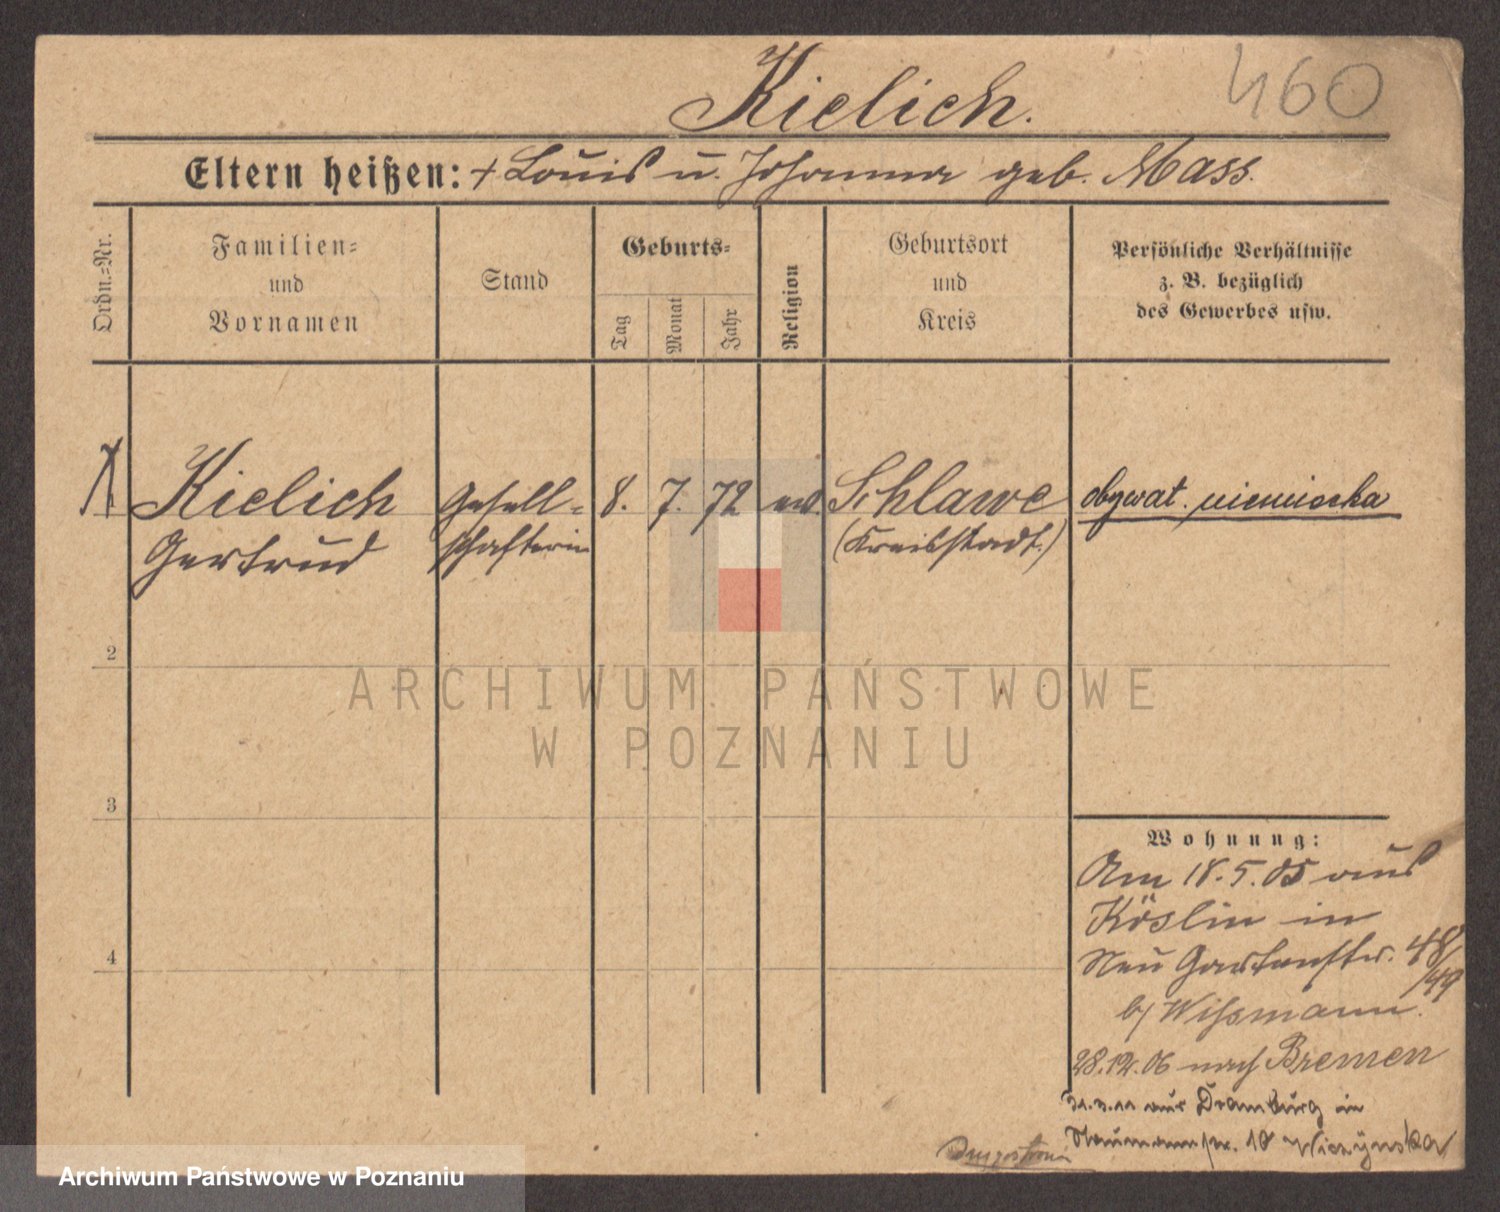 460
Kielich.
Eltern heißen: + Louis u. Johanna geb. Mass.
Ordn.=Nr.
Familien=
und
Vornamen
Stand
Geburts=
Tag
Monat
Jahr
Religion
Geburtsort
und
Kreis
Persönliche Verhältnisse
z. B. bezüglich
des Gewerbes usw.
Kielich Gesell= 8. 7. 72 ev. Schlawe obywat. niemiecka
Gertrud schafterin (Kreisstadt.)
2
3
4
Wohnung:
Am 18.5.05 aus
Köslin in
Neu Gartenstr. 48/
/49
b/ Wissmann.
28.12.06 nach Bremen
31.3.11 aus Dramburg in
Naumannstr. 10 Wiczynska
ARCHIWUM PAŃSTWOWE
W POZNANIU
Archiwum Państwowe w Poznaniu